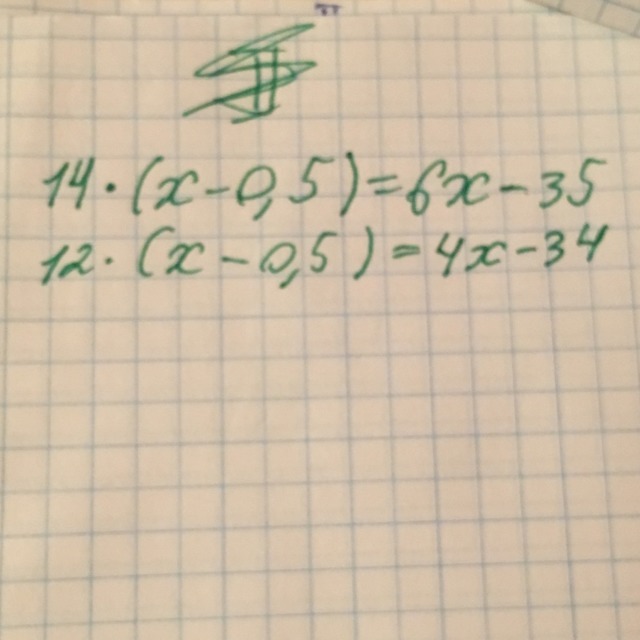 14·(x-0,5)=6x-35
12·(x-0,5)=4x-34